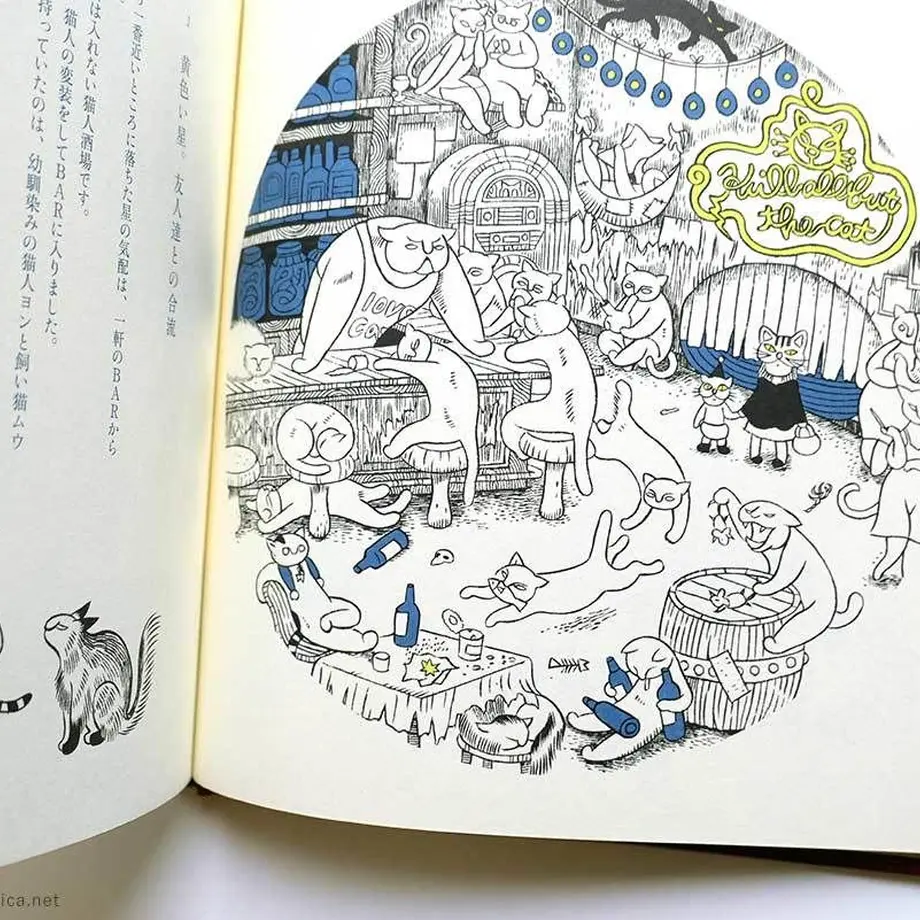 黄色い星。友人達との合流
一番近いところに落ちた星の気配は、一軒のBARから
は入れない猫人酒場です。
猫人の変装をしてBARに入りました。
持っていたのは、幼馴染みの猫人ヨンと飼い猫ムウ
the cat
ica.net